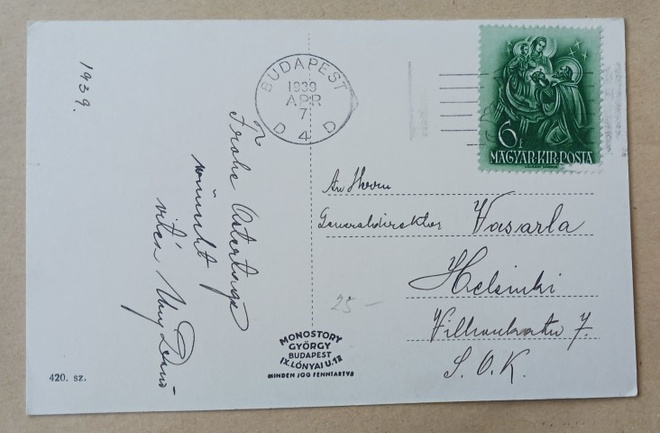 1939.
BUDAPEST
1939
APR
7
D 4 D
6f
MAGYAR·KIR·POSTA
Frohe Ostertage
wünscht
vitéz
An Herrn
Generaldirektor Vasarla
Helsinki
7.
S. O. K.
25—
MONOSTORY
GYÖRGY
BUDAPEST
IX. LÓNYAI U. 12
MINDEN JOG FENNTARTVA
420. sz.